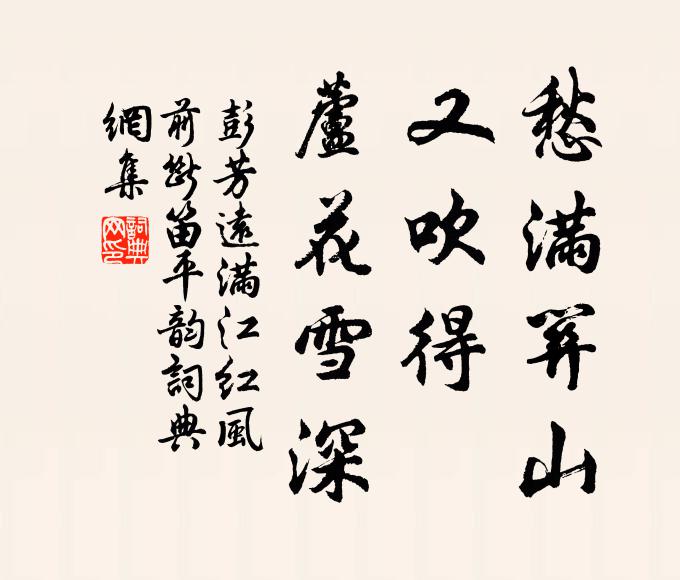 愁滿關山
又吹得
蘆花雪深
彭芳遠滿江紅風
前斷笛平韵詞典
網集
詞典
網印